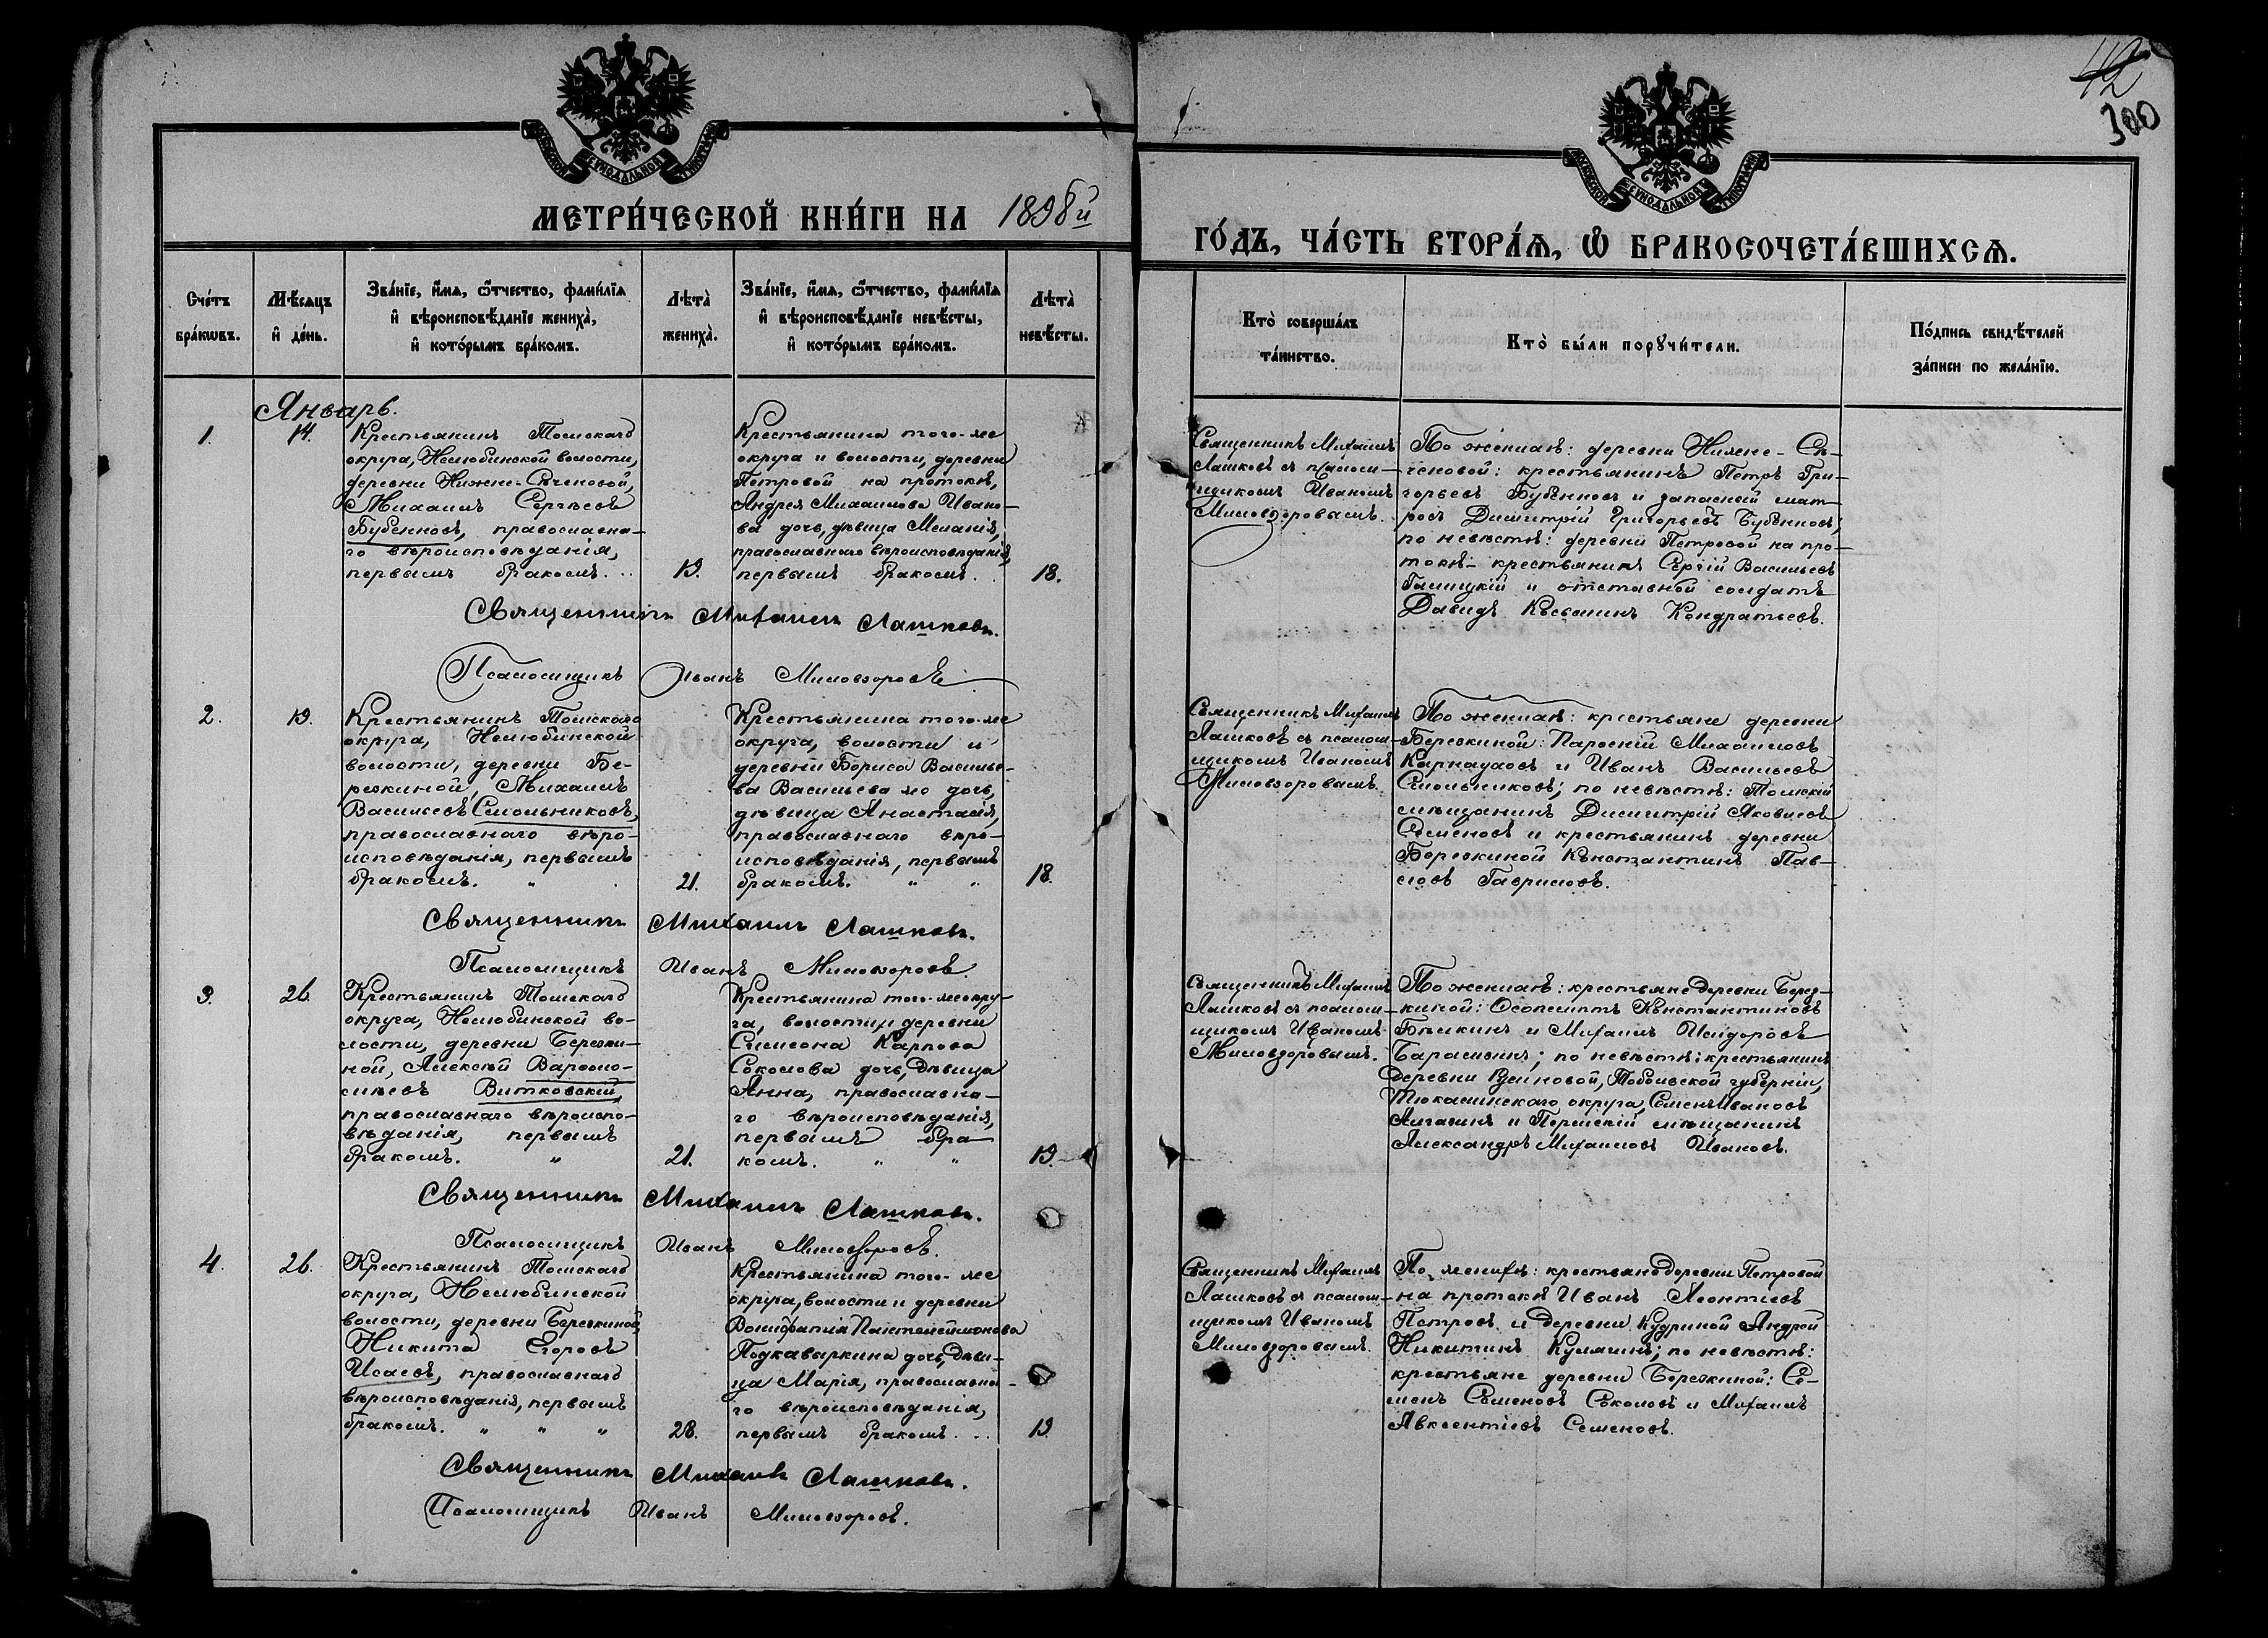 42
300
МЕТРИ́ЧЕСКОЙ КНИ́ГИ НА 1898й
ГО́ДЪ, ЧА́СТЬ ВТОРА́Ѧ, Ѡ БРАКОСОЧЕТА́ВШИХСѦ.
Сче́тъ
бра́кѡвъ.
Мѣ́сяцъ
и҆ де́нь.
Зва́нїе, и҆́мѧ, ѻ҆́тчество, фами́лїѧ
и҆ вѣроисповѣ́данїе жениха̀,
и҆ кото́рымъ бра́комъ.
Лѣта̀
жениха̀.
Зва́нїе, и҆́мѧ, ѻ҆́тчество, фами́лїѧ
и҆ вѣроисповѣ́данїе невѣ́сты,
и҆ кото́рымъ бра́комъ.
Лѣта̀
невѣ́сты.
Кто̀ соверша́лъ
та́инство.
Кто̀ бы́ли порꙋчи́тели.
По́дпись свидѣ́телей
за́писи по жела́нїю.
Январь.
1.
14.
Крестьянинъ Томскаго
округа, Нелюбинской волости,
деревни Нижне-Сѣченовой,
Михаилъ Сергѣевъ
Бубенновъ, православна-
го вѣроисповѣданія,
первымъ бракомъ.
19.
Крестьянина того-же
округа и волости, деревни
Петровой на протокѣ,
Андрея Михаилова Ивано-
ва дочь, дѣвица Меланія,
православнаго вѣроисповѣданія,
первымъ бракомъ.
18.
Священникъ Михаилъ
Лашковъ съ псалом-
щикомъ Иваномъ
Миловзоровымъ.
По женихѣ: деревни Нижне-Сѣ-
ченовой: крестьянинъ Петръ Гри-
горьевъ Бубенновъ и запасный мат-
росъ Димитрій Григорьевъ Бубенновъ;
по невѣстѣ: деревни Петровой на про-
токѣ - крестьянинъ Сергій Васильевъ
Галицкій и отставной солдатъ
Давидъ Кондратьевъ.
Священникъ Михаилъ Лашковъ.
Псаломщикъ Иванъ Миловзоровъ
2.
19.
Крестьянинъ Томскаго
округа, Нелюбинской
волости, деревни Бе-
резкиной, Михаилъ
Васильевъ Смольниковъ,
православнаго вѣро-
исповѣданія, первымъ
бракомъ. "
21.
Крестьянина того-же
округа, волости и
деревни Бориса Василье-
ва Васильева дочь,
дѣвица Анастасія,
православнаго вѣро-
исповѣданія, первымъ
бракомъ. " "
18.
Священникъ Михаилъ
Лашковъ съ псалом-
щикомъ Иваномъ
Миловзоровымъ.
По женихѣ: крестьяне деревни
Березкиной: Михаиловъ
Карнауховъ и Иванъ Васильевъ
Смольниковъ; по невѣстѣ: Томскій
мѣщанинъ Димитрій Яковлевъ
Семеновъ и крестьянинъ деревни
Березкиной Константинъ Пав-
ловъ Гавриловъ.
Священникъ Михаилъ Лашковъ.
Псаломщикъ Иванъ Миловзоровъ.
3.
26.
Крестьянинъ Томскаго
округа, Нелюбинской во-
лости, деревни Березки-
ной, Алексѣй Варѳоло-
мѣевъ Витковскій,
православнаго вѣроиспо-
вѣданія, первымъ
бракомъ. "
21.
Крестьянина того-же окру-
га, волости и деревни
Симеона Карпова
Соколова дочь, дѣвица
Анна, православна-
го вѣроисповѣданія,
первымъ бра-
комъ. " "
19.
Священникъ Михаилъ
Лашковъ съ псалом-
щикомъ Иваномъ
Миловзоровымъ.
По женихѣ: крестьяне деревни Берез-
киной: Константиновъ
и Михаилъ Исидоровъ
по невѣстѣ: крестьянинъ
деревни Тобольской губерніи,
Тюкалинскаго округа, Семенъ Ивановъ
и Пермскій мѣщанинъ
Александръ Михаиловъ Ивановъ.
Священникъ Михаилъ Лашковъ.
Псаломщикъ Иванъ Миловзоровъ.
4.
26.
Крестьянинъ Томскаго
округа, Нелюбинской
волости, деревни Березкиной,
Никита Егоровъ
Исаевъ, православнаго
вѣроисповѣданія, первымъ
бракомъ. " " "
28.
Крестьянина того-же
округа, волости и деревни
Вонифатія Пантелеймонова
Подкаваркина дочь, дѣви-
ца Марія, православна-
го вѣроисповѣданія,
первымъ бракомъ.
19.
Священникъ Михаилъ
Лашковъ съ псалом-
щикомъ Иваномъ
Миловзоровымъ.
По женихѣ: крестьяне деревни Петровой
на протокѣ Иванъ Леонтіевъ
Петровъ и деревни Кудриной Андрей
Никитинъ Кулагинъ; по невѣстѣ:
крестьяне деревни Березкиной: Се-
менъ Семеновъ Соколовъ и Михаилъ
Авксентіевъ Семеновъ.
Священникъ Михаилъ Лашковъ.
Псаломщикъ Иванъ Миловзоровъ.